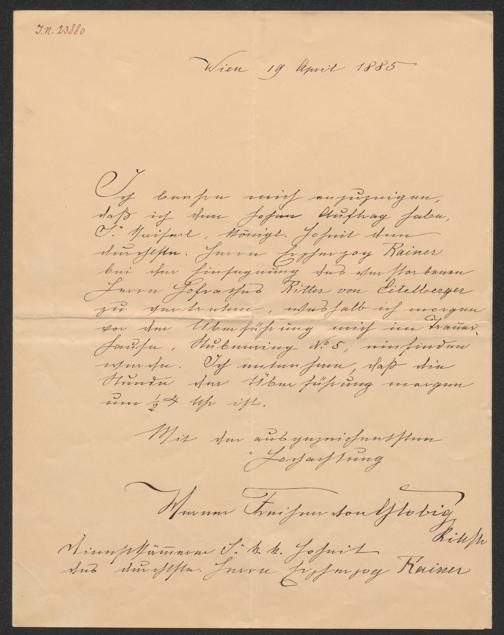 I.N. 23880
Wien 19 April 1885
Ich beehre mich anzuzeigen,
daß ich den hohen Auftrag habe,
Sr. Kaiserl. Königl. Hoheit den
durchlstn. Herrn Erzherzog Rainer
bei der Einsegnung des verstorbenen
Herrn Hofrathes Ritter von Eitelberger
zu vertreten, weshalb ich morgen
vor der Überführung mich im Trauer-
hause, Stubenring No. 5, einfinden
werde. Ich vernehme, daß die
Stunde der Überführung morgen
um ½ 4 Uhr ist.
Mit der ausgezeichnetsten
Hochachtung
Werner Freiherr von Globig
Dienstkämmerer Sr. k. k. Hoheit
des durchlstn. Herrn Erzherzog Rainer